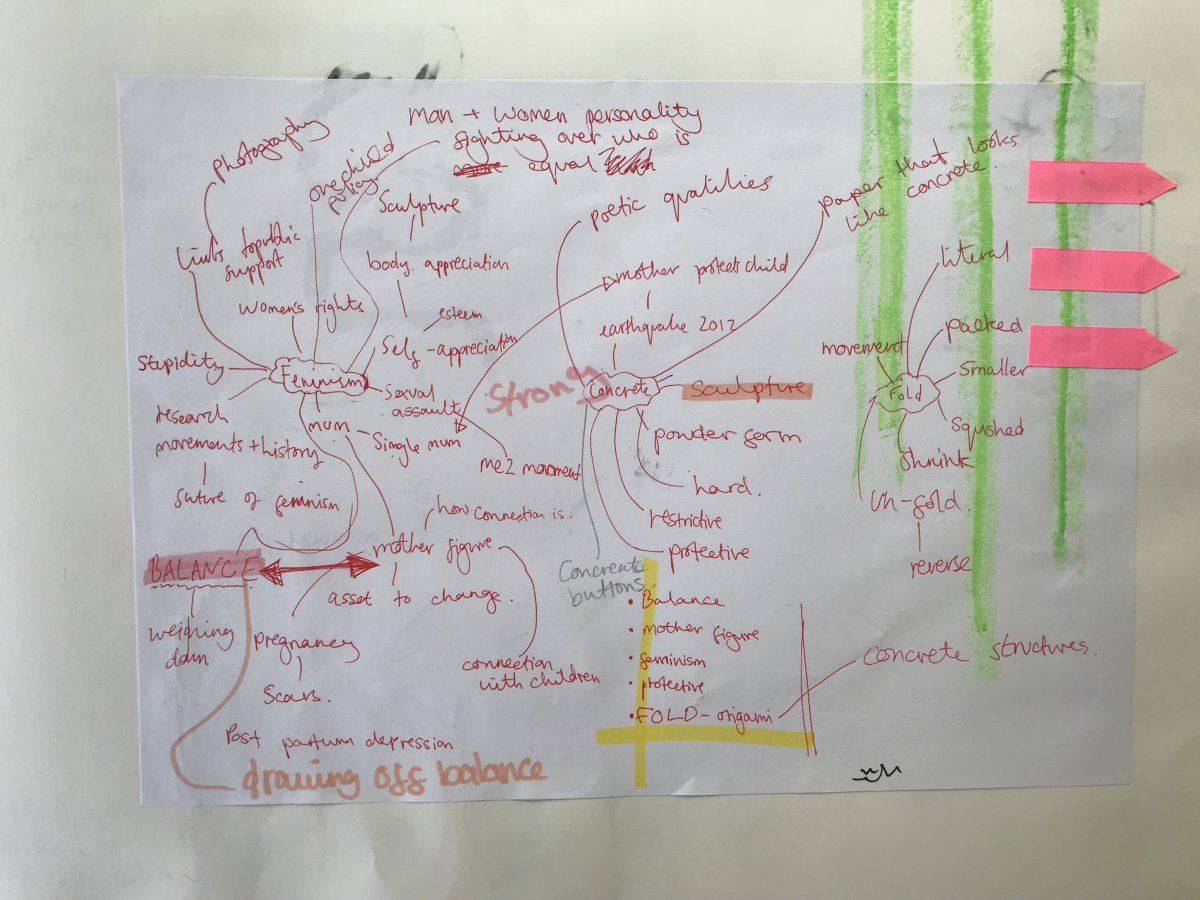 man + women personality
fighting over who is
equal?
photography
one child
policy.
Links to public
support
women's rights
Sculpture
body appreciation
esteem
Self-appreciation
Stupidity
Feminism
Sexual
assault
research
movements + history
future of feminism
mum
Single mum
me2 movement
BALANCE
weighing
down
how connection is.
mother figure
asset to change.
pregnancy
Scars.
connection
with children
Post partum depression
drawing off balance
poetic quatilies
paper that looks
like concrete.
mother protect child
earthquake 2012
Strong
Concrete
Sculpture
powder form
hard.
restrictive
protective
Concreate
buttons
• Balance
• mother figure
• feminism
• protective
• FOLD - origami
concrete structures.
literal
movement
packed
Smaller
Fold
Squshed
Shrink
Un-fold.
reverse